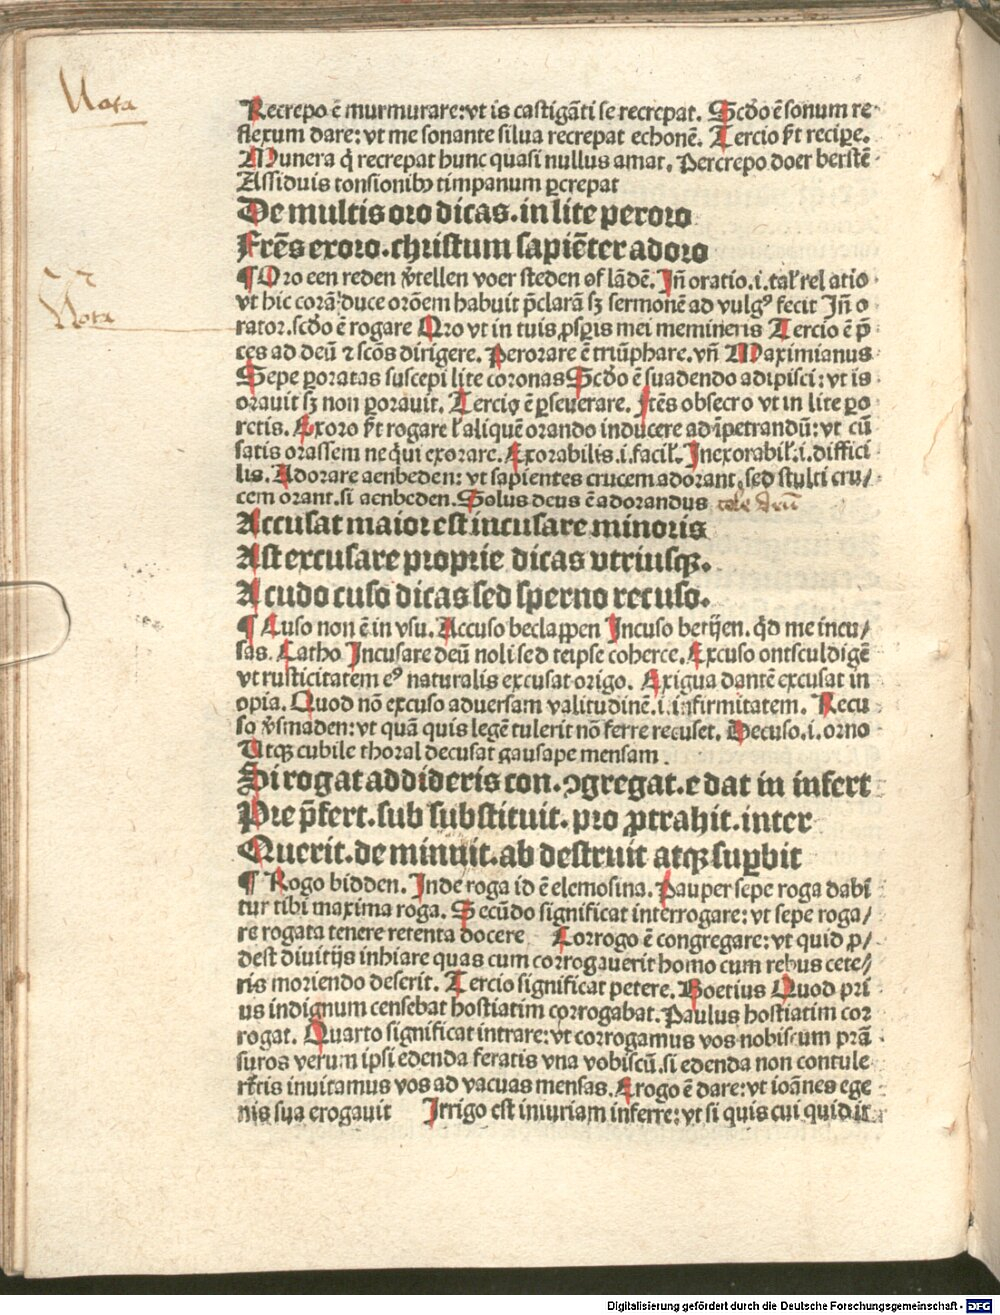 Nota
Recrepo ē murmurare: vt is castigāti se recrepat. Scďo ē sonum re
flexum dare: vt me sonante silua recrepat echonē. Tercio ſt recipe.
Munera q̄ recrepat hunc quasi nullus amat. Percrepo doer berstē
Assiduis tonsionibꝫ timpanum ꝑcrepat
De multis oro dicas. in lite peroro
Frēs exoro. christum sapiēter adoro
¶ Oro een reden v̄tellen voer steden of lādē. Jn̄ oratio .i. tal' rel atio
vt hic corā duce orōem habuit p̄clarā sꝫ sermonē ad vulgꝰ fecit Jn̄ o
Nota
rator. scďo ē rogare Oro vt in tuis ꝓsꝑis mei memineris Tercio ē p̄
ces ad deū ⁊ scōs dirigere. Perorare ē triūphare. vn̄ Maximianus
Sepe ꝑoratas suscepi lite coronas Scďo ē suadendo adipisci: vt is
orauit sꝫ non ꝑorauit. Tercio ē ꝑseuerare. frēs obsecro vt in lite ꝑo
retis. Exoro ſt rogare l' aliquē orando inducere ad īpetrandū: vt cū
satis orassem neq̇ui exorare. Exorabilis .i. facil'. Jnexorabil' .i. diffici
lis. Adorare aenbeden: vt sapientes crucem adorant, sed stulti cru/
cem orant. si aenbeden. Solus deus ē adorandus
Accusat maior est incusare minoris
Ast excusare proprie dicas vtriusqꝫ.
A cudo cuso dicas sed sperno recuso.
¶ Cuso non ē in vsu. Accuso beclappen Jncuso betijen. q̇d me incu/
sas. Catho Jncusare deū noli sed teipse coherce. Excuso ontsculdigē
vt rusticitatem eꝰ naturalis excusat origo. Exigua dantē excusat in
opia. Quod nō excuso aduersam valitudinē .i. infirmitatem. Recu
so v̄smaden: vt quā quis legē tulerit nō ferre recuset. Decuso .i. orno
Utqꝫ cubile thoral decusat gausape mensam.
Si rogat addideris con. ꝯgregat. e dat in infert
Pre p̄fert. sub substituit. pro ꝓtrahit. inter
Querit. de minuit. ab destruit atqꝫ suꝑbit
¶ Rogo bidden. Jnde roga id ē elemosina. Pauper sepe roga dabi
tur tibi maxima roga. Secūdo significat interrogare: vt sepe roga/
re rogata tenere retenta docere Corrogo ē congregare: vt quid ꝓ/
dest diuitijs inhiare quas cum corrogauerit homo cum rebus cete/
ris moriendo deserit. Tercio significat petere. Boetius Quod pri
us indignum censebat hostiatim corrogabat. Paulus hostiatim cor
rogat. Quarto significat intrare: vt corrogamus vos nobiscum prā
suros verum ipsi edenda feratis vna vobiscū. si edenda non contule
rītis inuitamus vos ad vacuas mensas. Erogo ē dare: vt ioānes ege
nis sua erogauit Jrrigo est iniuriam inferre: vt si quis cui quid ir
Digitalisierung gefördert durch die Deutsche Forschungsgemeinschaft - DFG